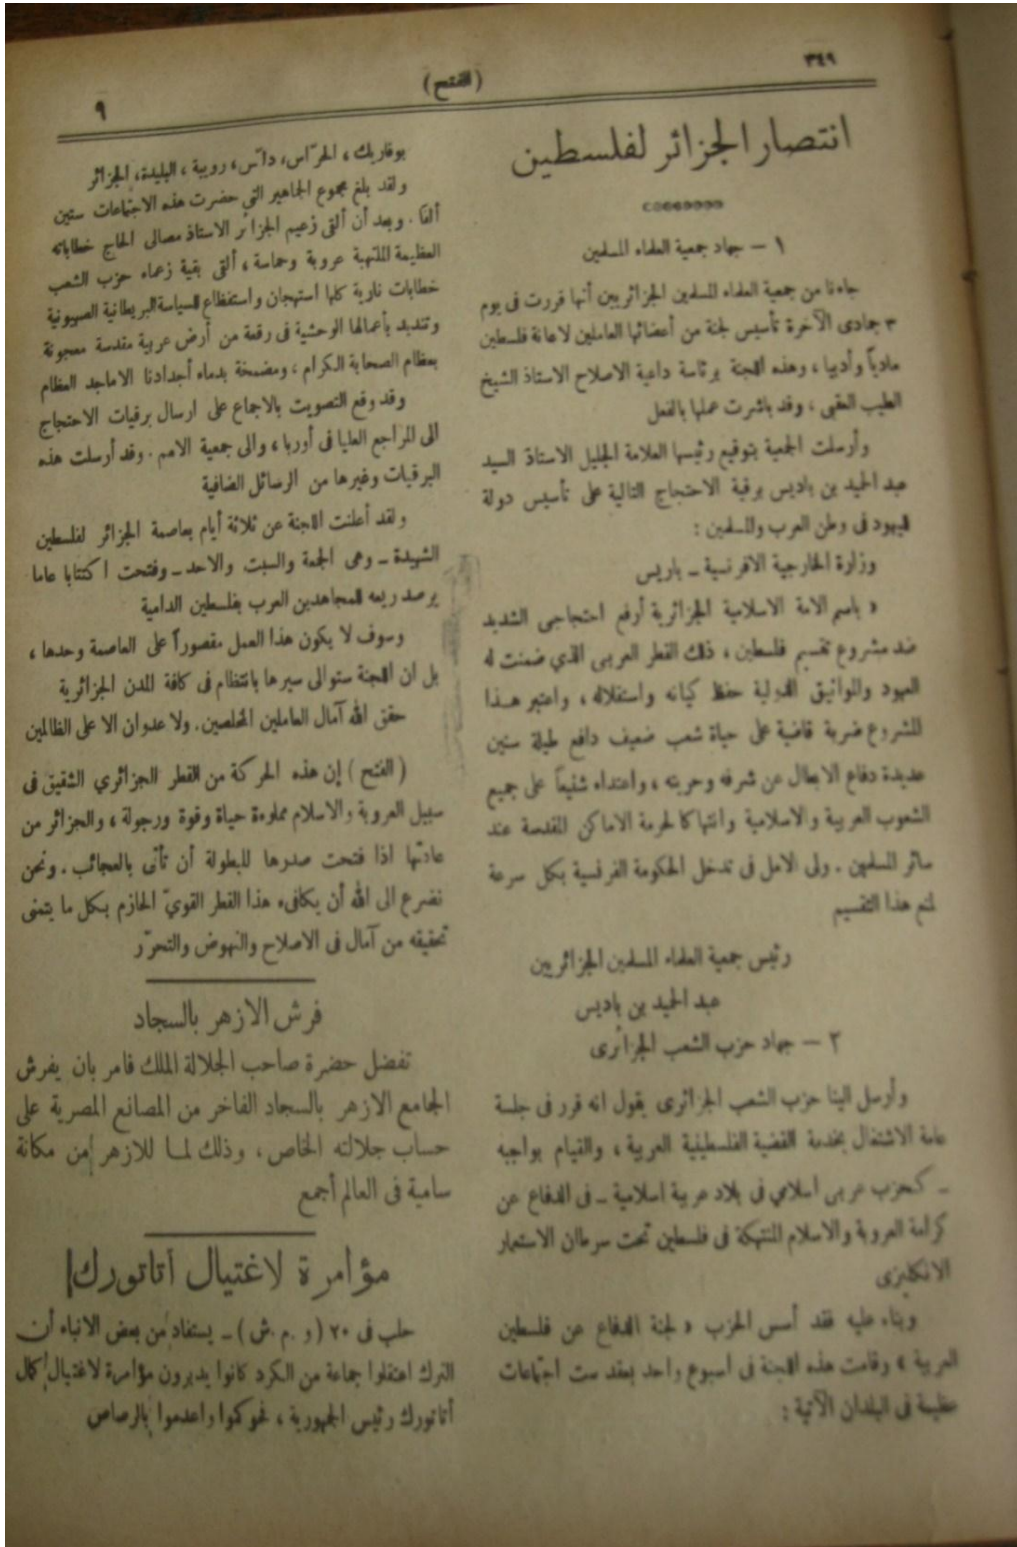 ٣٤٩
(الفتح)
٩
انتصار الجزائر لفلسطين
١ - جهاد جمعية العلماء المسلمين
جاءنا من جمعية العلماء المسلمين الجزائريين أنها قررت فى يوم
٣ جمادى الآخرة تأسيس لجنة من أعضائها العاملين لاعانة فلسطين
مادياً وأدبيا ، وهذه اللجنة برئاسة داعية الاصلاح الاستاذ الشيخ
الطيب العقبى ، وقد باشرت عملها بالفعل
وأرسلت الجمعية بتوقيع رئيسها العلامة الجليل الاستاذ السيد
عبد الحميد بن باديس برقية الاحتجاج التالية على تأسيس دولة
لليهود فى وطن العرب والمسلمين :
وزارة الخارجية الافرنسية ــ باريس
« باسم الامة الاسلامية الجزائرية أرفع احتجاجى الشديد
ضد مشروع تقسيم فلسطين ، ذلك القطر العربى الذي ضمنت له
العهود والمواثيق الدولية حفظ كيانه واستقلاله ، واعتبر هـذا
المشروع ضربة قاضية على حياة شعب ضعيف دافع طيلة سنين
عديدة دفاع الابطال عن شرفه وحريته ، واعتداء شنيعاً على جميع
الشعوب العربية والاسلامية وانتهاكا لحرمة الاماكن المقدسة عند
سائر المسلمين . ولى الامل فى تدخل الحكومة الفرنسية بكل سرعة
لمنع هذا التقسيم
رئيس جمعية العلماء المسلمين الجزائريين
عبد الحميد بن باديس
٢ — جهاد حزب الشعب الجزائرى
وأرسل الينا حزب الشعب الجزائرى يقول انه قرر فى جلسة
عامة الاشتغال بخدمة القضية الفلسطينية العربية ، والقيام بواجبه
ــ كحزب عربى اسلامي فى بلاد عربية اسلامية ــ فى الدفاع عن
كرامة العروبة والاسلام المنتهكة فى فلسطين تحت سرطان الاستعمار
الانكليزى
وبناء عليه فقد أسس الحزب « لجنة الدفاع عن فلسطين
العربية » وقامت هذه اللجنة فى اسبوع واحد بعقد ست اجتماعات
عظيمة فى البلدان الآتية :
بوفاريك ، الحرّاس، دلّس، رويبة ، البليدة، الجزائر
ولقد بلغ مجموع الجماهير التي حضرت هذه الاجتماعات ستين
ألفا . وبعد أن ألقى زعيم الجزائر الاستاذ مصالى الحاج خطاباته
العظيمة الملتهبة عروبة وحماسة ، ألقى بقية زعماء حزب الشعب
خطابات نارية كلها استهجان واستفظاع للسياسة البريطانية الصهيونية
وتنديد بأعمالها الوحشية فى رقعة من أرض عربية مقدسة معجونة
بعظام الصحابة الكرام ، ومضمخة بدماء أجدادنا الاماجد العظام
وقد وقع التصويت بالاجماع على ارسال برقيات الاحتجاج
الى المراجع العليا فى أوربا ، والى جمعية الامم . وقد أرسلت هذه
البرقيات وغيرها من الرسائل الضافية
ولقد أعلنت اللجنة عن ثلاثة أيام بعاصمة الجزائر لفلسطين
الشهيدة ــ وهى الجمعة والسبت والاحد ــ وفتحت اكتتابا عاما
يرصد ريعه للمجاهدين العرب بفلسطين الدامية
وسوف لا يكون هذا العمل مقصوراً على العاصمة وحدها ،
بل ان اللجنة ستوالى سيرها بانتظام فى كافة المدن الجزائرية
حقق الله آمال العاملين المخلصين. ولا عدوان الا على الظالمين
( الفتح ) إن هذه الحركة من القطر الجزائري الشقيق فى
سبيل العروبة والاسلام مملوءة حياة وقوة ورجولة ، والجزائر من
عادتها اذا فتحت صدرها للبطولة أن تأتى بالعجائب . ونحن
نضرع الى الله أن يكافىء هذا القطر القويّ الحازم بكل ما يتمنى
تحقيقه من آمال فى الاصلاح والنهوض والتحرّر
فرش الازهر بالسجاد
تفضل حضرة صاحب الجلالة الملك فامر بان يفرش
الجامع الازهر بالسجاد الفاخر من المصانع المصرية على
حساب جلالته الخاص ، وذلك لمـا للازهر من مكانة
سامية فى العالم أجمع
مؤامرة لاغتيال أتاتورك
حلب فى ٢٠ ( و . م . ش ) ــ يستفاد من بعض الانباء أن
الترك اعتقلوا جماعة من الكرد كانوا يدبرون مؤامرة لاغتيال كمال
أتاتورك رئيس الجمهورية ، فحوكموا واعدموا بالرصاص